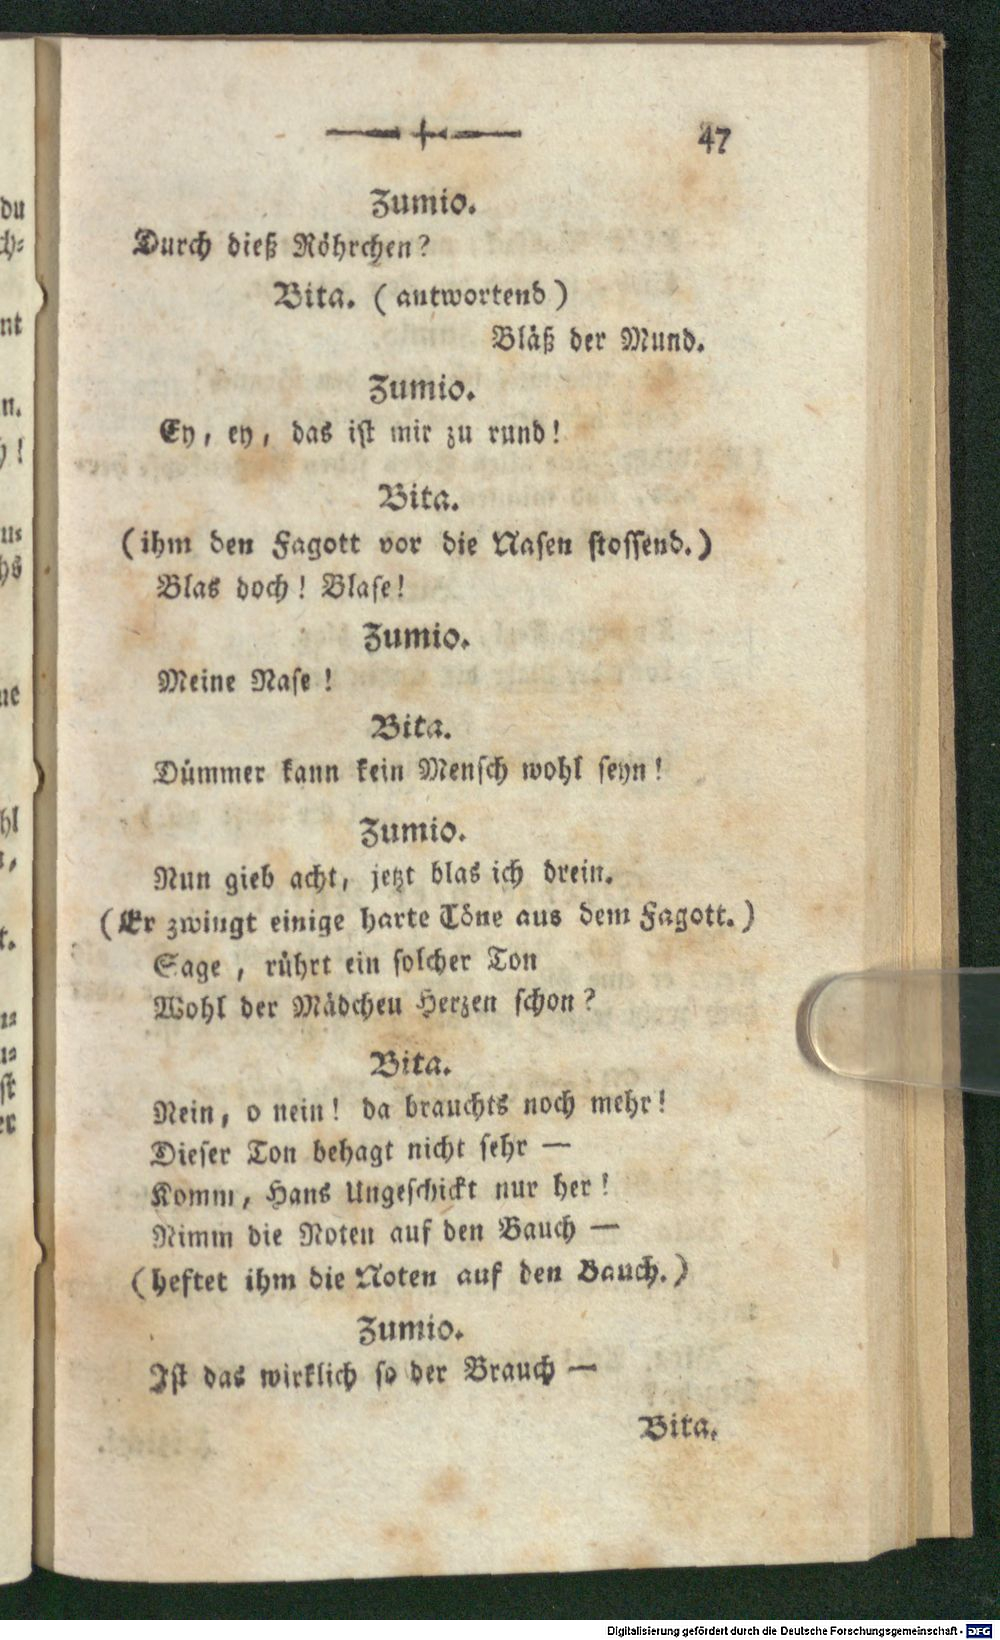 47
Zumio.
Durch dieß Röhrchen?
Bita. (antwortend)
Bläß der Mund.
Zumio.
Ey, ey, das ist mir zu rund!
Bita.
(ihm den Fagott vor die Nasen stossend.)
Blas doch! Blase!
Zumio.
Meine Nase!
Bita.
Dümmer kann kein Mensch wohl seyn!
Zumio.
Nun gieb acht, jetzt blas ich drein.
(Er zwingt einige harte Töne aus dem Fagott.)
Sage, rührt ein solcher Ton
Wohl der Mädchen Herzen schon?
Bita.
Nein, o nein! da brauchts noch mehr!
Dieser Ton behagt nicht sehr —
Komm, Hans Ungeschickt nur her!
Nimm die Noten auf den Bauch —
(heftet ihm die Noten auf den Bauch.)
Zumio.
Ist das wirklich so der Brauch —
Bita.
Digitalisierung gefördert durch die Deutsche Forschungsgemeinschaft - DFG